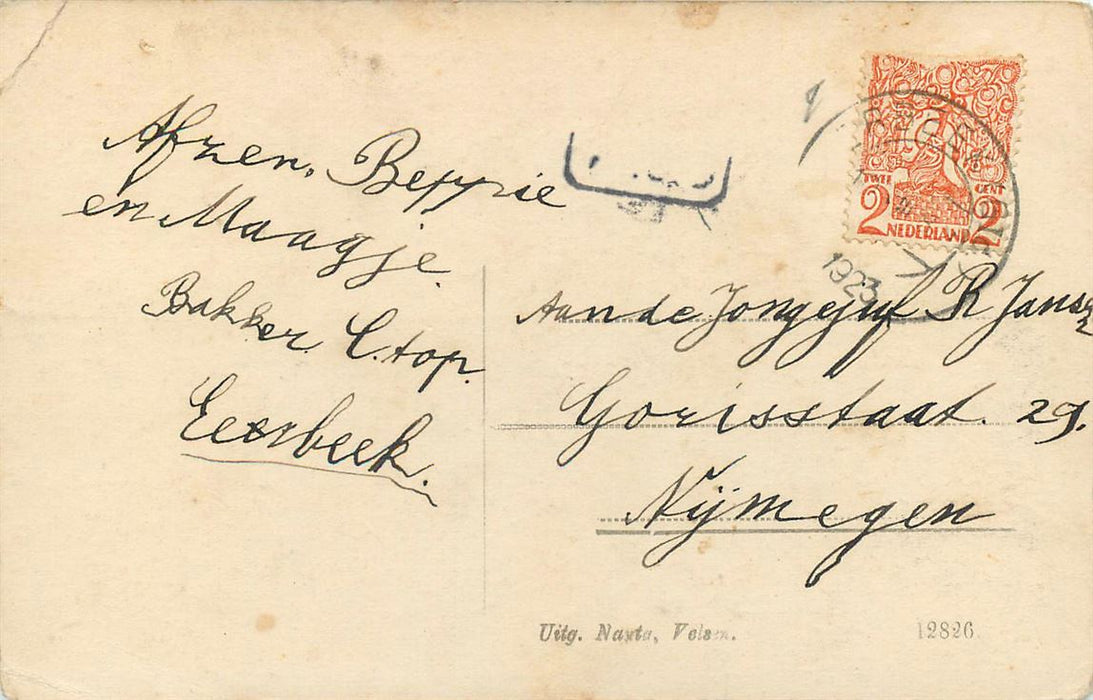 Afzen. Beppie
en Maagje
Bakker C. top.
Eerbeek.
TWEE CENT
2 2
NEDERLAND
1923
Aan de Jongejuf R Jansz
Gorisstaat. 29.
Nijmegen
Uitg. Nauta, Velsen.
12826